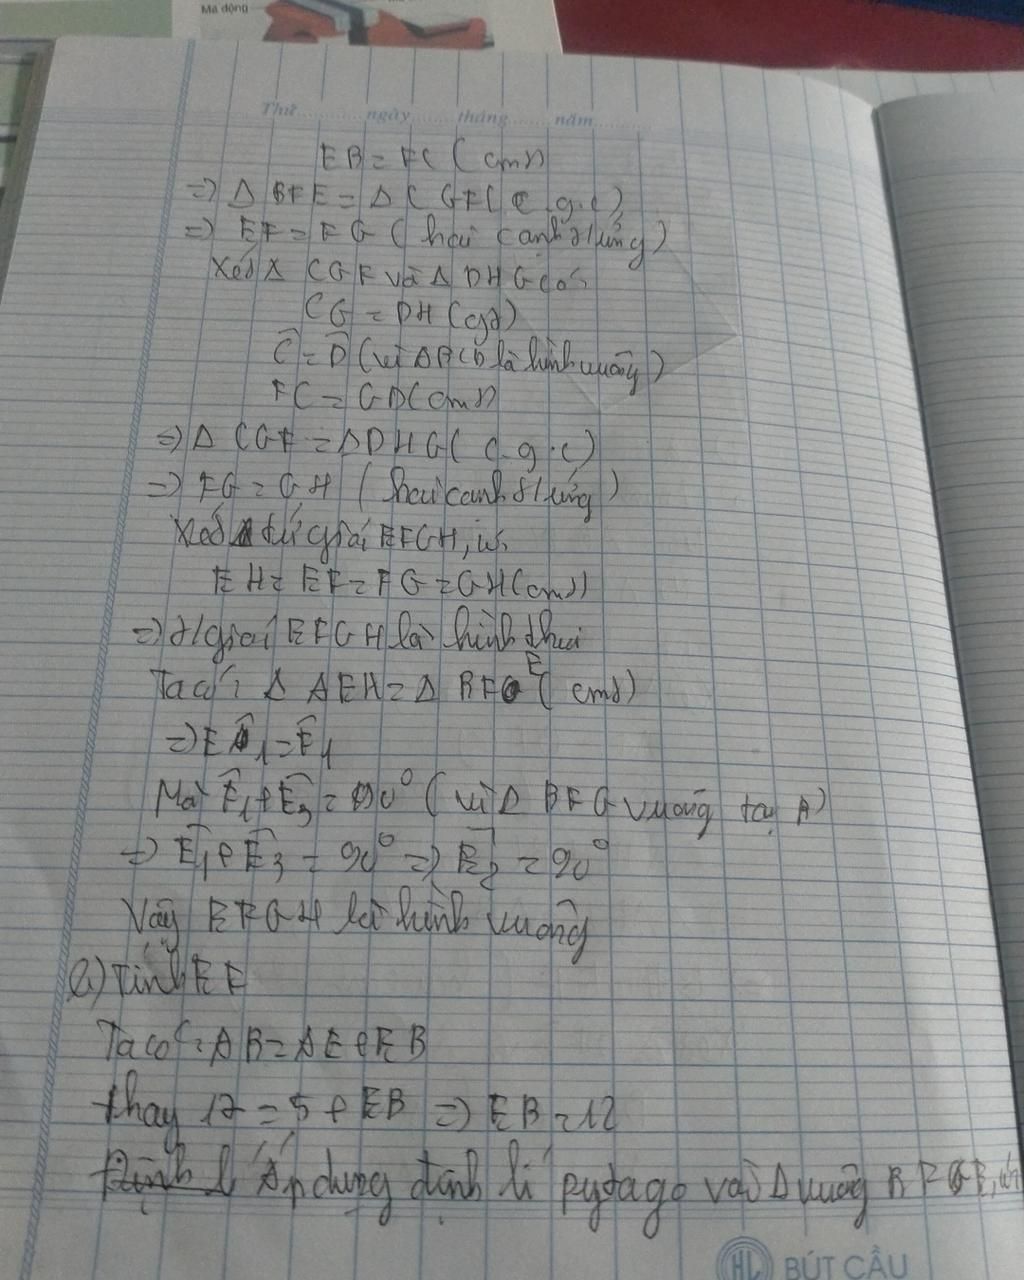 Mã động
Thứ ngày tháng năm
EB = FC (cmt)
=> Δ BFE = Δ CGF (c.g.c)
=> EF = FG (hai cạnh t/ứng)
Xét Δ CGF và Δ DHG có:
CG = DH (cgt)
C = D (vì ABCD là hình vuông)
FC = GD (cmt)
=> Δ CGF = Δ DHG (c.g.c)
=> FG = GH (hai cạnh t/ứng)
Xét tứ giác EFGH, có
EH = EF = FG = GH (cmt)
=> t/giác EFGH là hình thoi
Ta có: Δ AEH = Δ BFE (cmt)
=> E1 = F1
Mà F1 + E3 = 90° (vì Δ BFG vuông tại A)
=> E1 + E3 = 90° => E2 = 90°
Vậy EFGH là hình vuông
Tính EF
Ta có: AB = AE + EB
thay 17 = 5 + EB => EB = 12
Áp dụng định lí pytago vào Δ vuông
HL BÚT CẦU